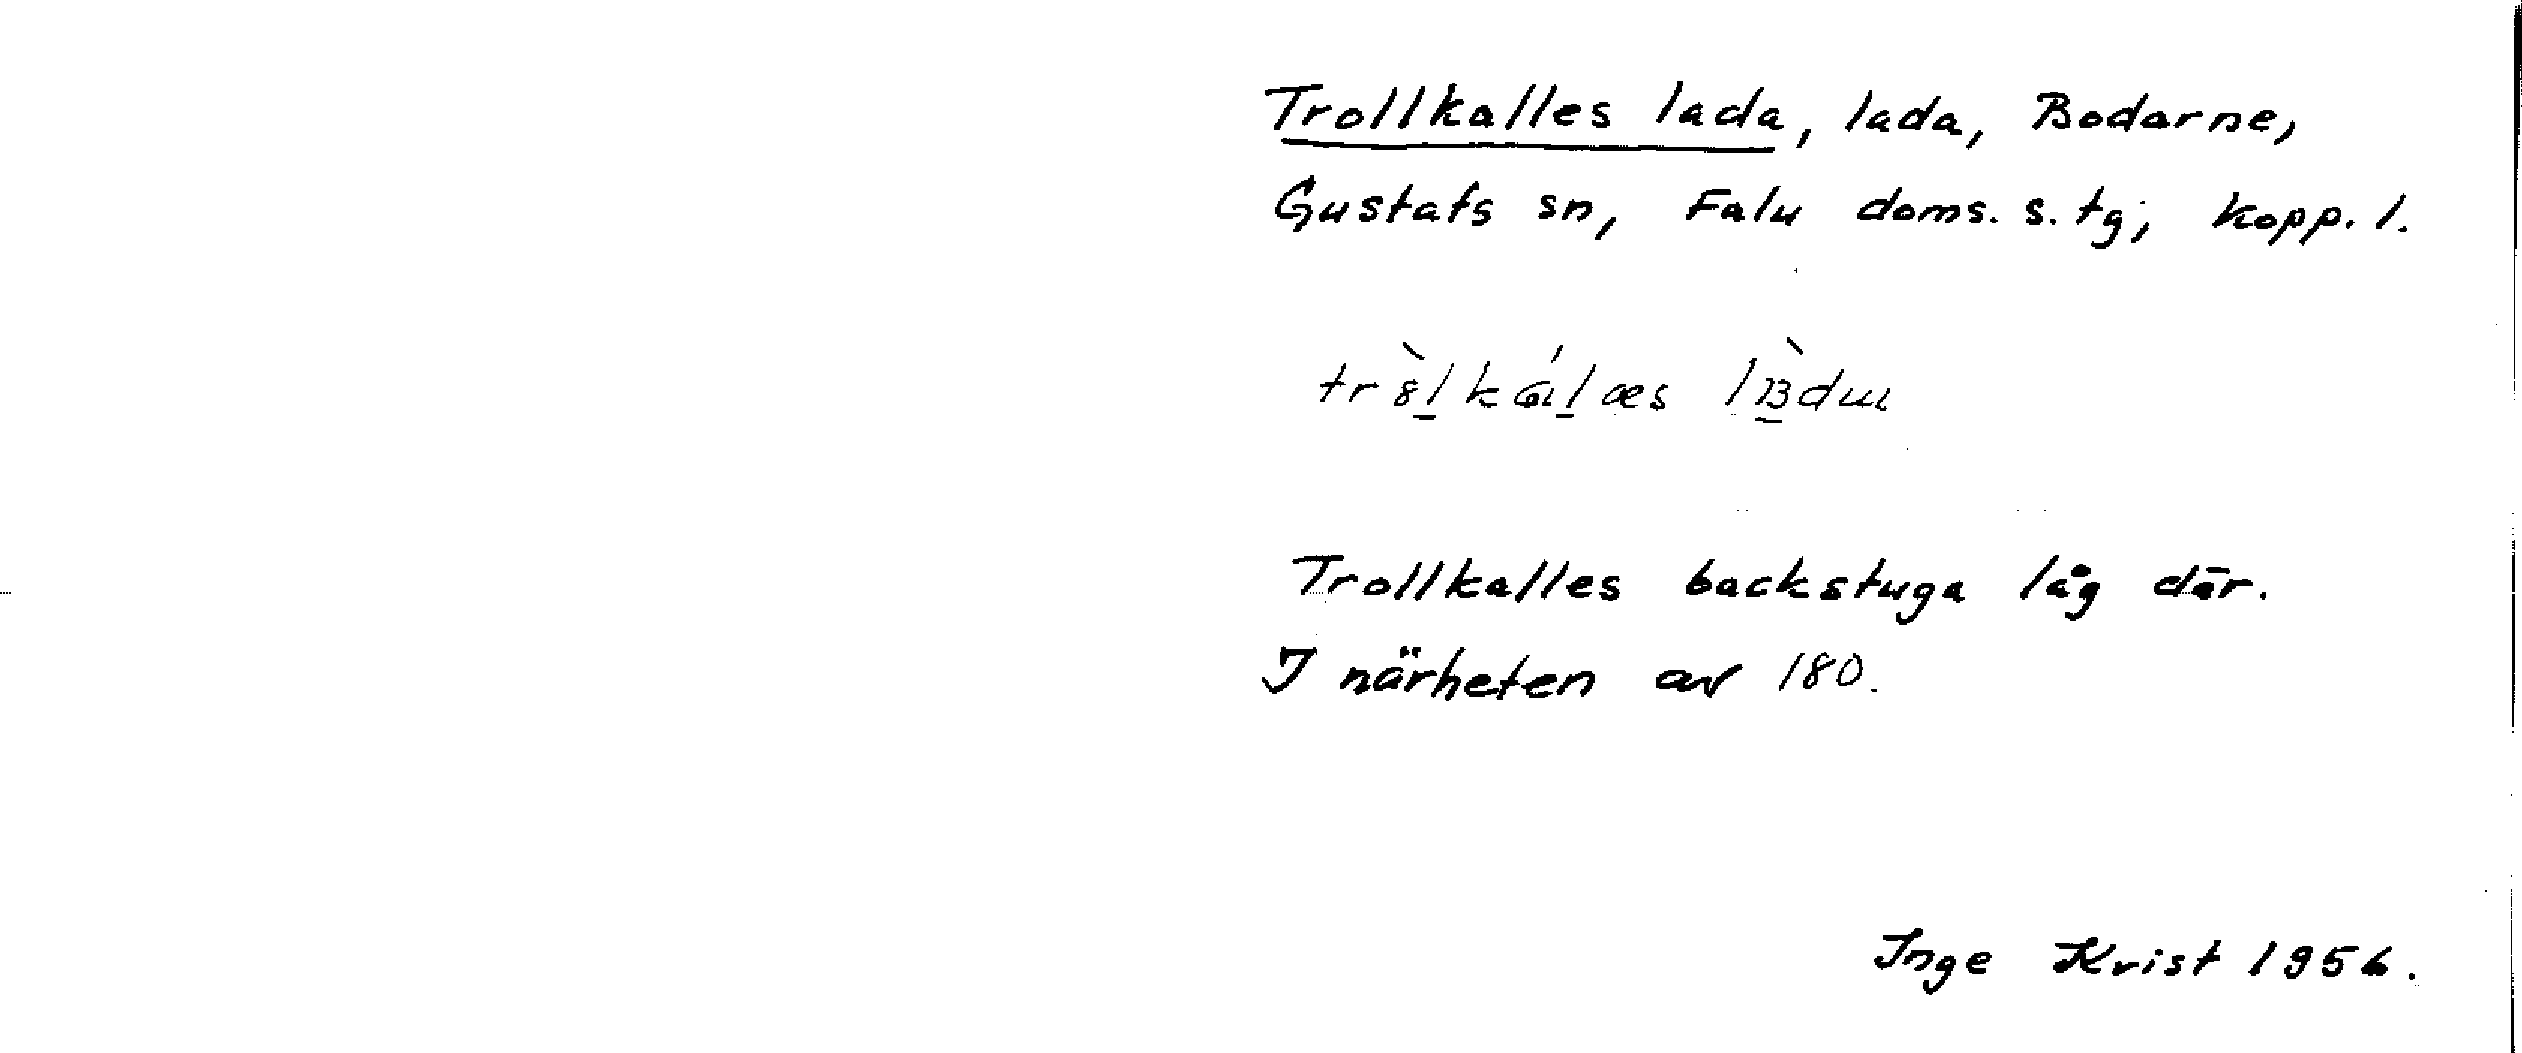 Trollkalles lada, lada, Bodarne,
Gustafs sn, Falu doms. s. tg, Kopp. l.
Trollkalles backstuga låg där.
I närheten av 180.
Inge Krist 1956.